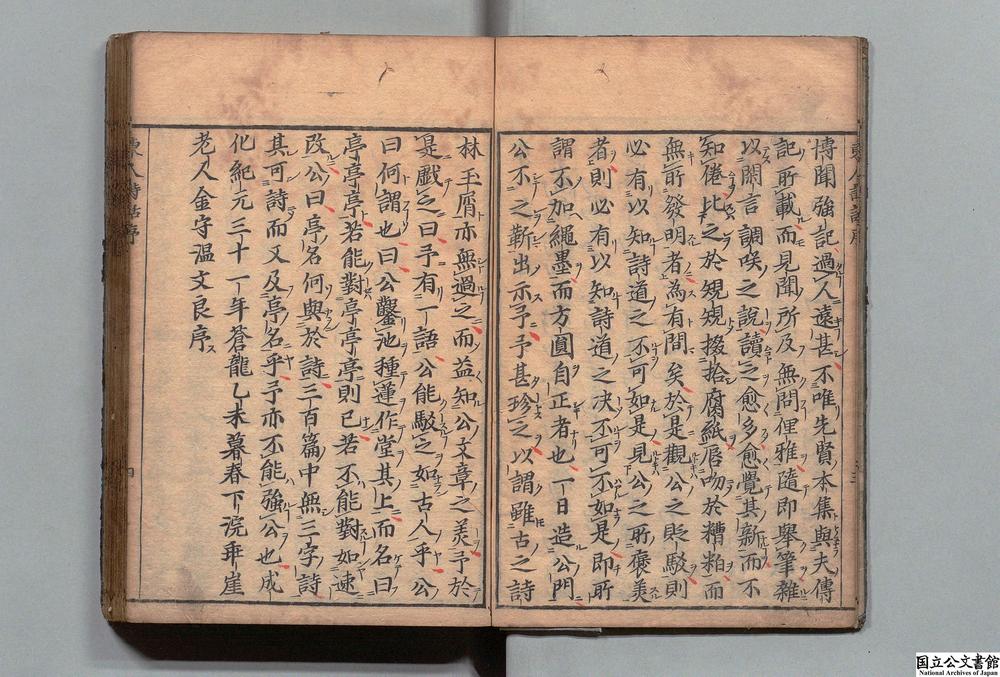 東人詩話序
博聞強記過人遠甚不唯先賢本集與夫傳
記所載而見聞所及無問俚雅隨即舉筆雜
以閑言調咲之說讀之愈多愈覺其新而不
知倦比之於規規掇拾腐紙唇吻於糟粕而
無所發明者為有間矣於是觀公之貶駁則
必有以知詩道之不可如是見公之所褒美
者則必有以知詩道之决不可不如是即所
謂不加繩墨而方圓自正者也一日造公門
公不之靳出示予予甚珍之以謂雖古之詩
林玉屑亦無過之而益知公文章之美予於
是戲之曰予有一語公能駁之如古人乎公
曰何謂也曰公鑿池種蓮作堂其上而名曰
亭亭亭若能對亭亭亭則已若不能對如速
改公曰亭名何與於詩三百篇中無三字詩
其可詩而又及亭名乎予亦不能強公也成
化紀元三十一年蒼龍乙未暮春下浣乖崖
老人金守溫文良序
東人詩話序
四
国立公文書館
National Archives of Japan